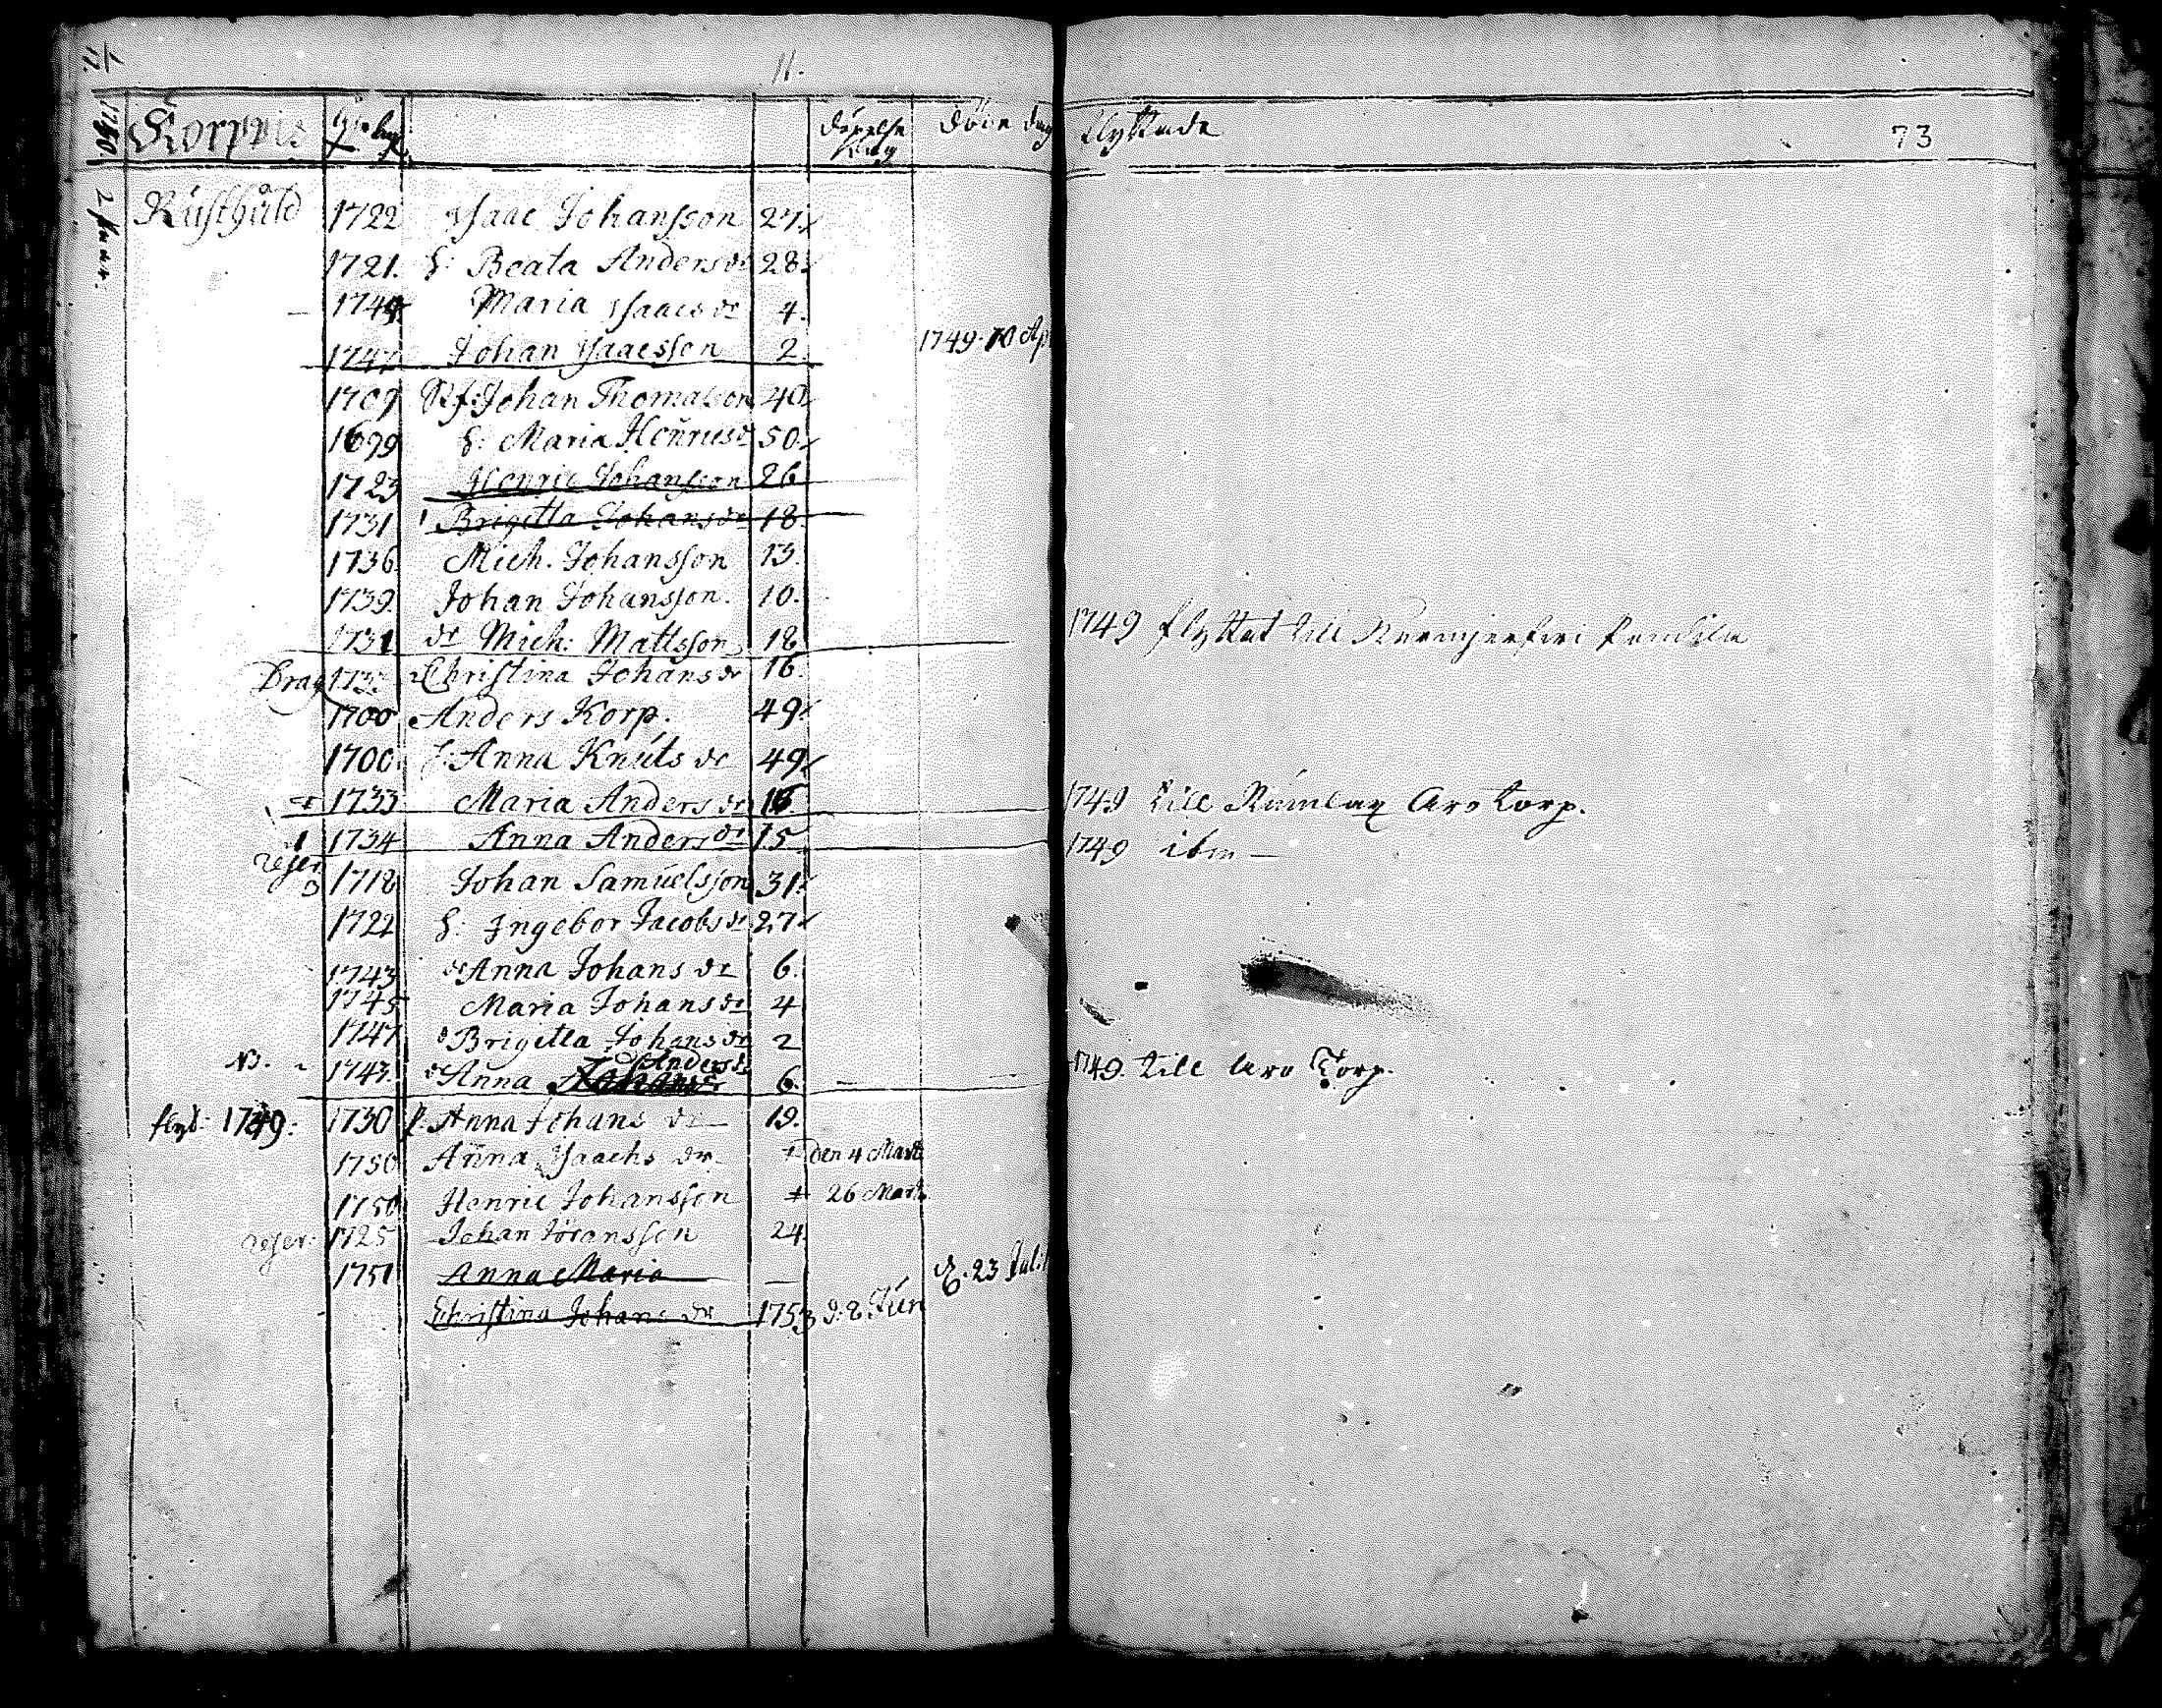 11.
Korpvis döpelse dag Döde dag flyttade 73
1750
Rusthåld 1722 Isaac Johansson 27.
1721. h: Beata Anders dr 28.
Maria Isaacs dr 4.
1747 Johan Isaacsson 2. 1749. 10 Ap
1709 Johan Thomasson 40
1699 h: Maria Henrics dr 50.
1723 Henric Johansson 26
1731 Brigitta Johans dr 18.
1736 Mich. Johansson 13.
1739. Johan Johansson. 10.
1731 dr Mich: Mattsson 18 1749 flyttat till
Drag 173 Christina Johans dr 16.
1700 Anders Korp. 49.
1700 h: Anna Knuts dr 49
1733 Maria Anders dr 16 1749 till Aro torp.
1734 Anna Anders dr 15 1749 ibm —
reser. 1718 Johan Samuelsson 31.
1722 h: Ingebor Jacobs dr 27.
1743 dr Anna Johans dr 6.
1745 Maria Johans dr 4
1747 Brigitta Johans dr 2
Anders dr
NB. 1743. dr Anna Johans dr 6. 1749. till Aro Torp.
flyt: 1749: 1730 p. Anna Johans dr 19.
1750 Anna Isaachs dr + den 4 Mart
1750 Henric Johansson + 26 Mart.
reser: 1725 Johan Jöransson 24
1751 Anna Maria — d. 23 Juli
Christina Johans dr 1753 d: 8. Jun